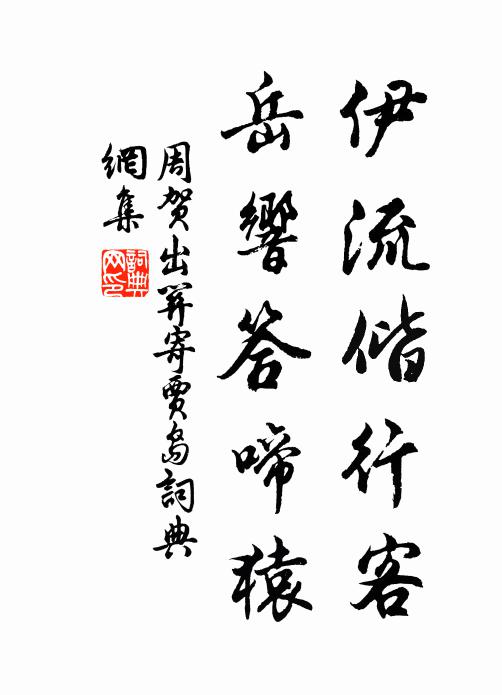 伊流偕行客
岳響答啼猿
周賀出關寄賈島詞典
網集
詞典
网印